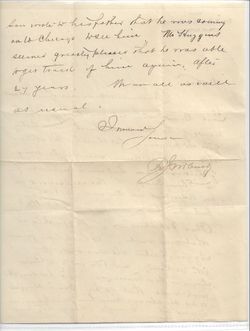 Son wrote to his father that he was coming
to Chicago to see him. Mr Huggins
seemed greatly pleased that he was able
to get track of him again, after
27 years. We are all as well
as usual.
Sincerely
Yours